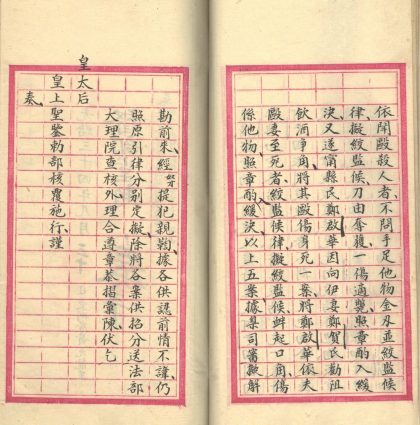 依鬭毆殺人者不問手足他物金刃並絞監候
律擬絞監候刀由奪獲一傷適斃照章酌入緩
決又遂甯縣民鄭啟華因向伊妻鄭賀氏勸阻
飲酒爭角將其毆傷身死一案將鄭啟華依夫
毆妻至死者絞監候律擬絞監候衅起口角傷
係他物照章酌緩決以上五案據臬司審擬解
勘前來經 提犯親鞫據各供認前情不諱仍
照原引律分別定擬除將各案供招分送法部
大理院查核外理合遵章恭摺彙陳伏乞
皇太后
皇上聖鑒勅部核覆施行謹
奏